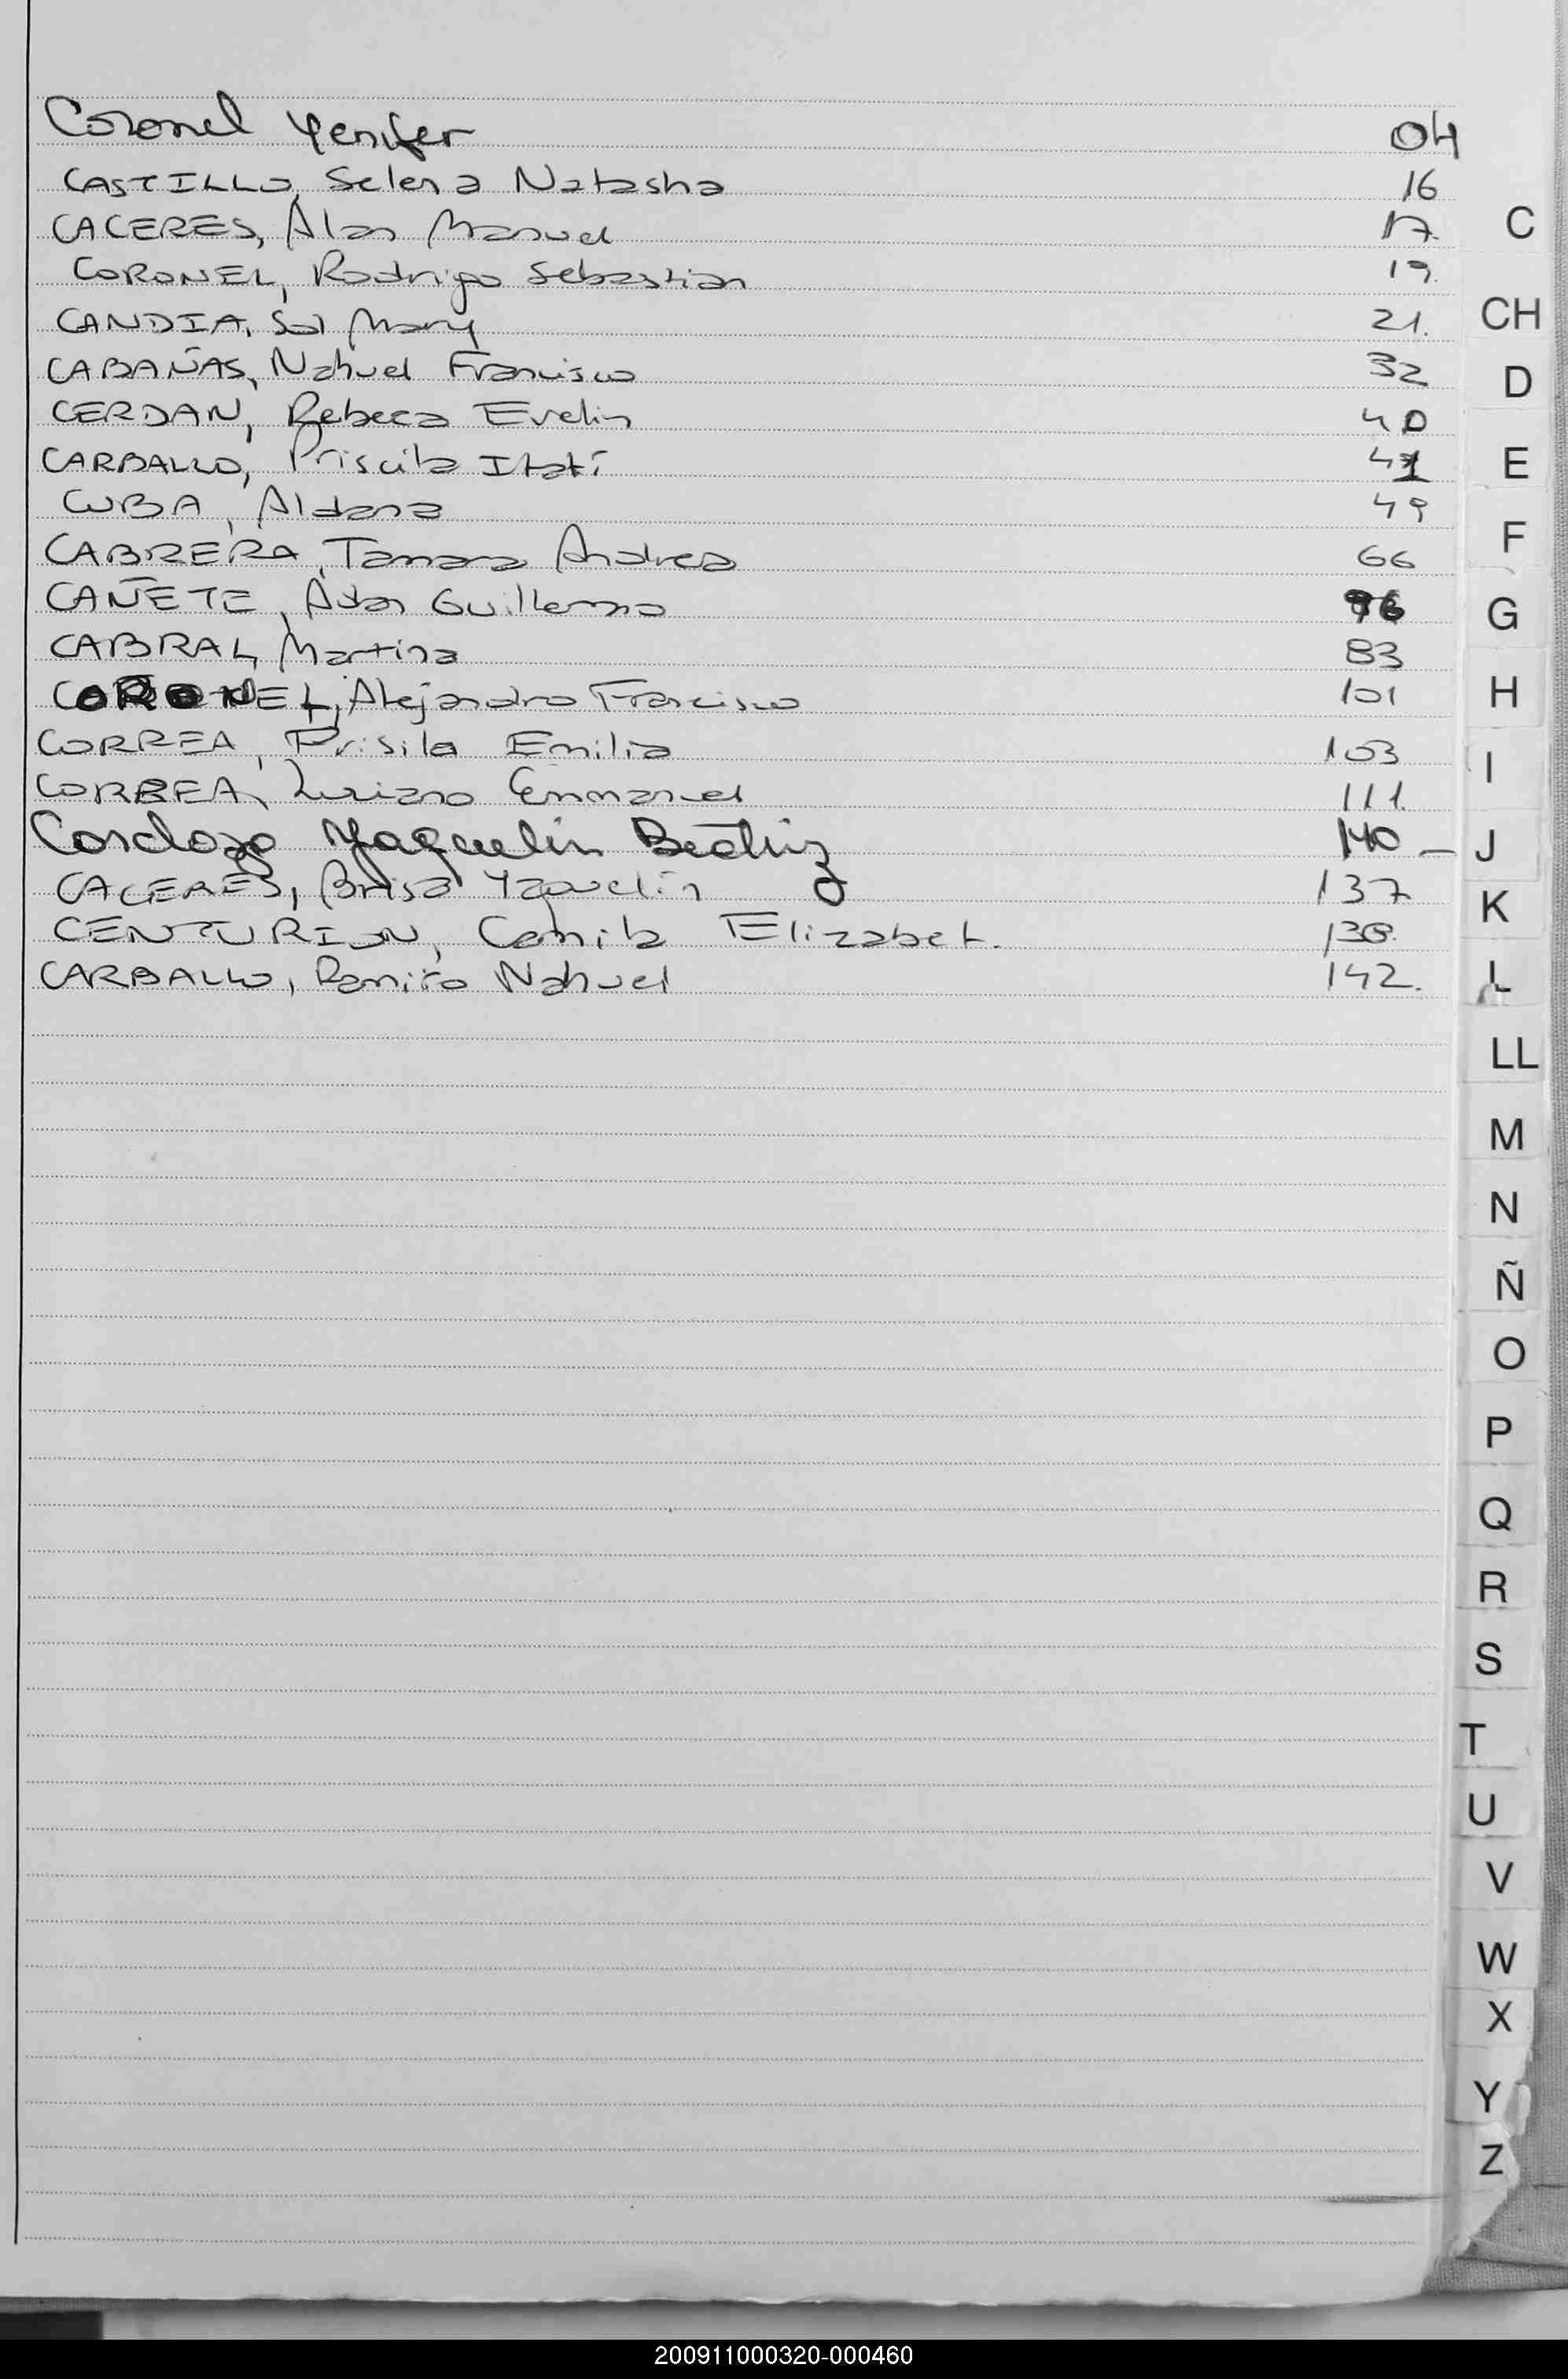 Coronel Yenifer 04
CASTILLO, Selena Natasha 16
CACERES, Alan Manuel 17.
CORONEL, Rodrigo Sebastian 19.
CANDIA, Sol Mary 21.
CABAÑAS, Nahuel Francisco 32
CERDAN, Rebeca Evelin 40
CARBALLO, Priscila Itatí 41
CUBA, Aldana 49
CABRERA, Tamara Andrea 66
CAÑETE, Adan Guillermo 76
CABRAL, Martina 83
CORONEL, Alejandro Francisco 101
CORREA, Prisila Emilia 103
CORREA, Luciano Emmanuel 111.
Cardozo Yaquelin Beatriz 140 –
CACERES, Brisa Yaquelin 137
CENTURION, Camila Elizabet. 138.
CARBALLO, Ramiro Nahuel 142.
C
CH
D
E
F
G
H
I
J
K
L
LL
M
N
Ñ
O
P
Q
R
S
T
U
V
W
X
Y
Z
200911000320-000460